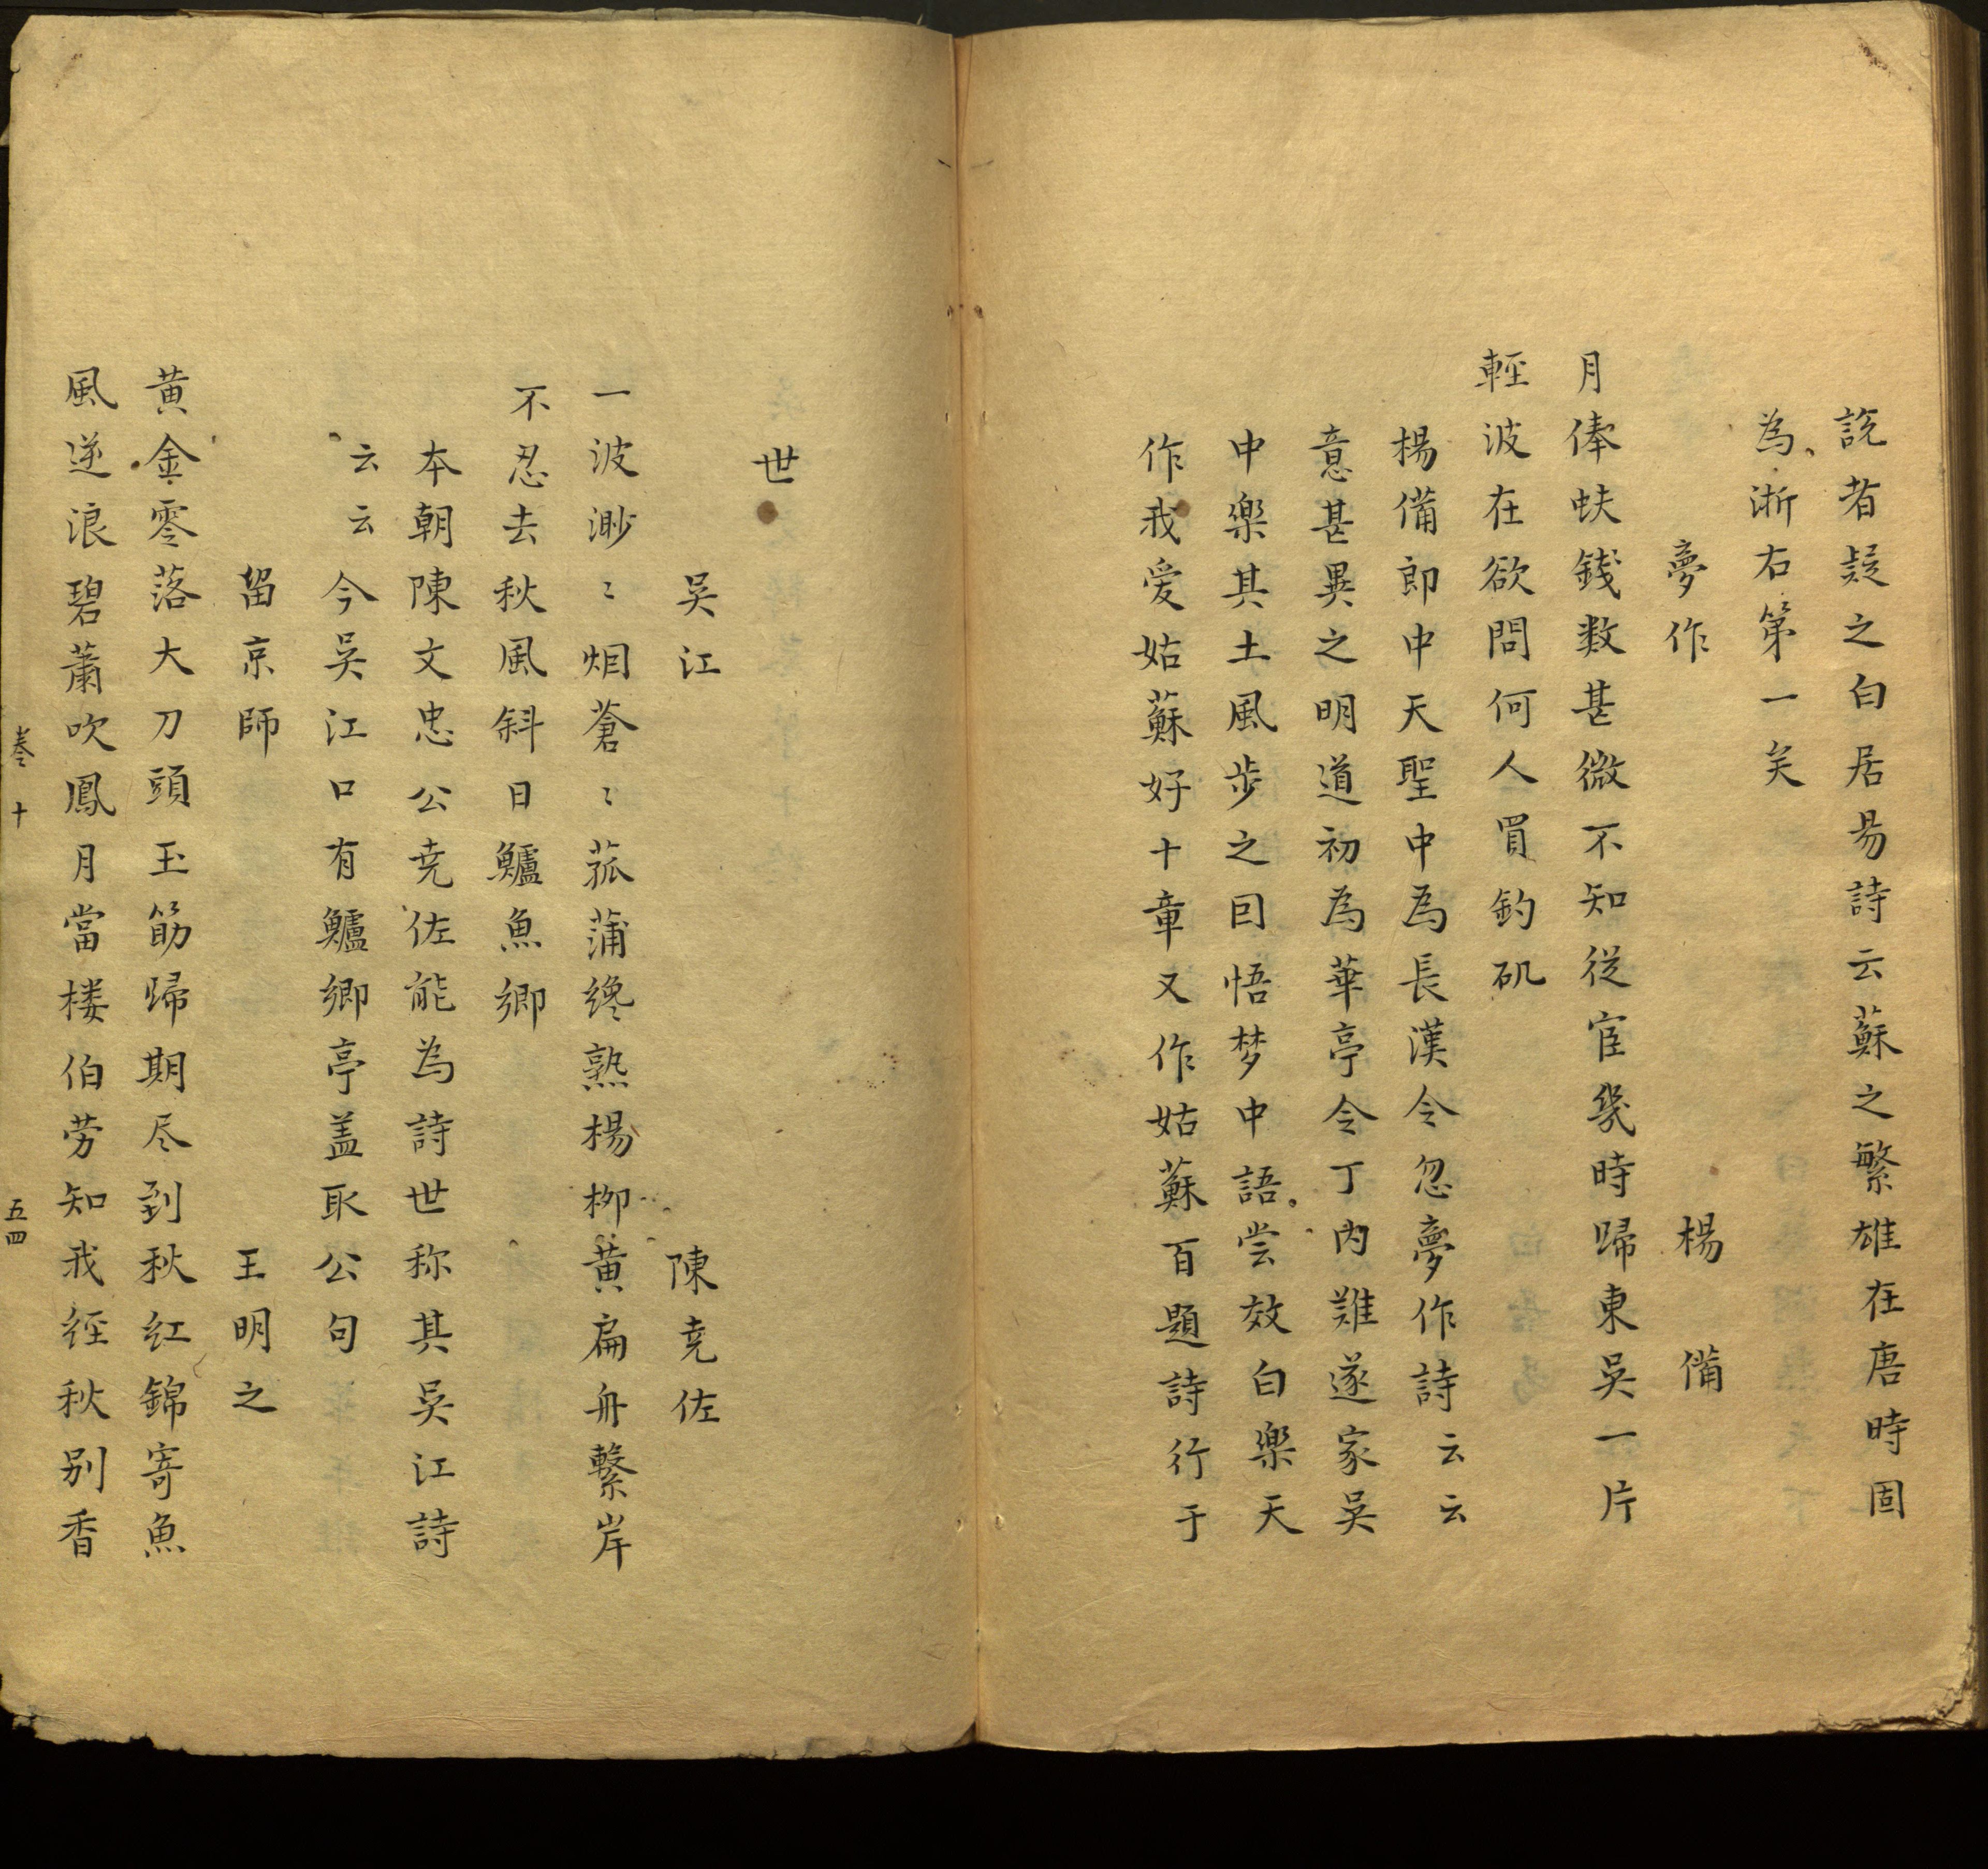 說者疑之白居易詩云蘇之繁雄在唐時固
為浙右第一矣
夢作 楊備
月俸蚨錢数甚微不知從宦幾時歸東吳一片
輕波在欲問何人買釣矶
楊備郎中天聖中為長漢令忽夢作詩云云
意甚異之明道初為華亭令丁内難遂家吳
中樂其土風步之囙悟梦中語尝效白樂天
作我爱姑蘇好十章又作姑蘇百題詩行于
世
吳江 陳尭佐
一波渺〻烟蒼〻菰蒲纔熟楊柳黄扁舟繫岸
不忍去秋風斜日鱸魚鄉
本朝陳文忠公尭佐能為詩世称其吳江詩
云云今吳江口有鱸鄉亭盖取公句
留京師 王明之
黄金零落大刀頭玉筯歸期尽到秋紅錦寄魚
風逆浪碧蕭吹鳳月當楼伯劳知我經秋别香
卷十 五四